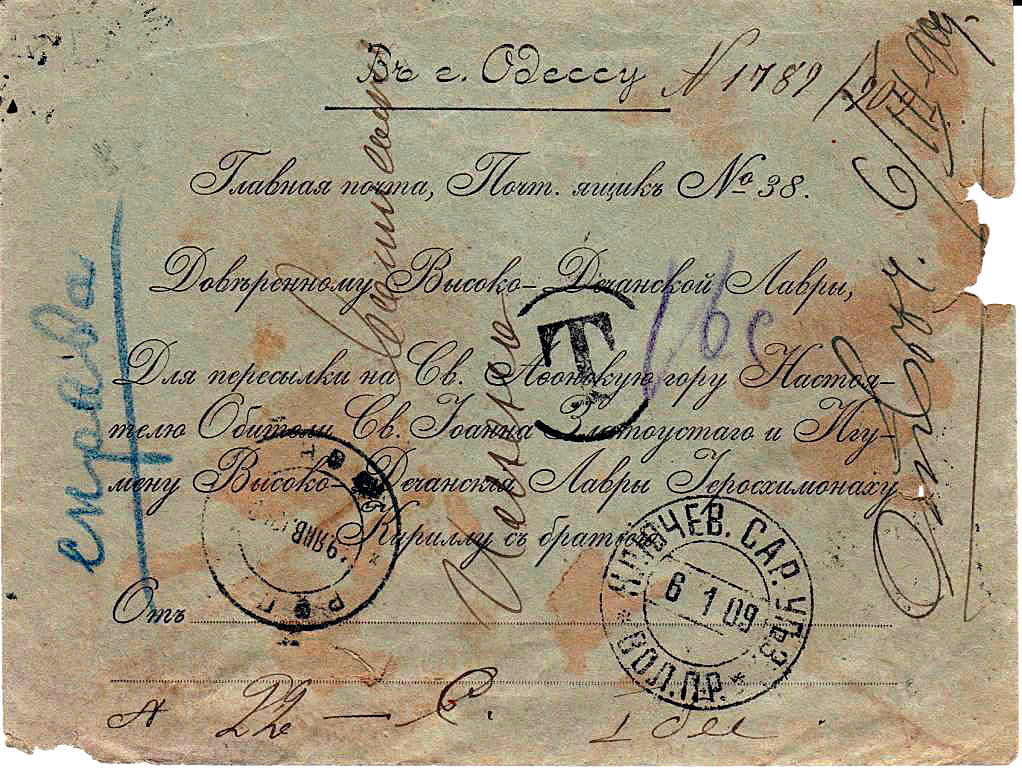 Въ г. Одессу
N 1789
Главная почта, Почт. ящикъ № 38.
Довѣренному Высоко-Дечанской Лавры,
Для пересылки на Св. Аѳонскую гору Настоя-
телю Обители Св. Іоанна Златоустаго и Игу-
мену Высоко-Дечанскія Лавры Іеросхимонаху
Кириллу съ братіею
Отъ
T
справа
КЛЮЧЕВ. САР. УѢЗ.
6 1 09
* ВОЛ.П.Р. *
ЯНВ
22 — С.